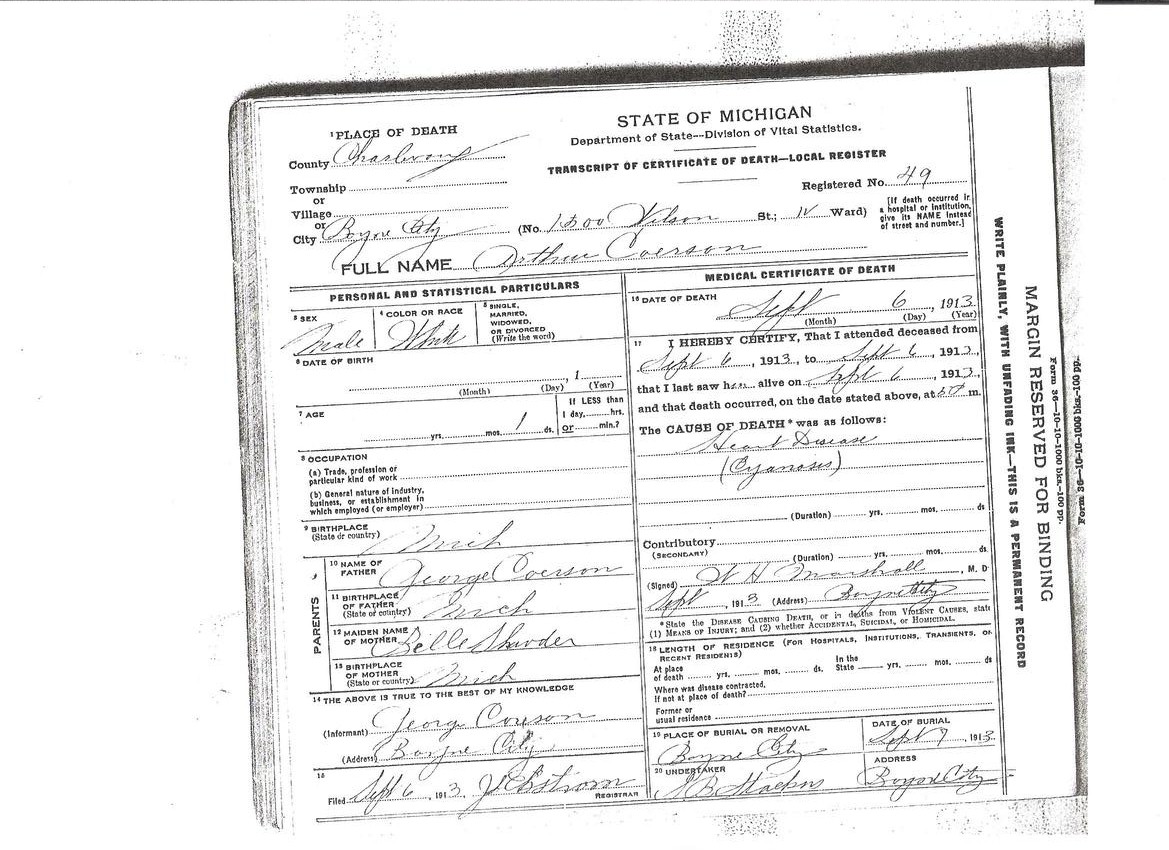 STATE OF MICHIGAN
Department of State---Division of Vital Statistics.
TRANSCRIPT OF CERTIFICATE OF DEATH—LOCAL REGISTER
1 PLACE OF DEATH
County Charlevoix
Township
or
Village
or
City Boyne City (No. 1500 Wilson St.; IV Ward)
Registered No. 49
[If death occurred in a hospital or institution, give its NAME instead of street and number.]
FULL NAME Arthur Coerson
PERSONAL AND STATISTICAL PARTICULARS
3 SEX Male
4 COLOR OR RACE White
5 SINGLE, MARRIED, WIDOWED, OR DIVORCED (Write the word)
6 DATE OF BIRTH
, 1
(Month) (Day) (Year)
7 AGE
yrs. mos. 1 ds.
If LESS than 1 day, hrs. or min.?
8 OCCUPATION
(a) Trade, profession or particular kind of work
(b) General nature of industry, business, or establishment in which employed (or employer)
9 BIRTHPLACE (State or country) Mich
PARENTS
10 NAME OF FATHER George Coerson
11 BIRTHPLACE OF FATHER (State or country) Mich
12 MAIDEN NAME OF MOTHER Belle
13 BIRTHPLACE OF MOTHER (State or country) Mich
14 THE ABOVE IS TRUE TO THE BEST OF MY KNOWLEDGE
(Informant) George
(Address) Boyne City
15
Filed Sept 6, 1913
REGISTRAR
MEDICAL CERTIFICATE OF DEATH
16 DATE OF DEATH
Sept 6, 1913
(Month) (Day) (Year)
17 I HEREBY CERTIFY, That I attended deceased from
Sept 6, 1913, to Sept 6, 1913,
that I last saw h alive on Sept 6, 1913
and that death occurred, on the date stated above, at m.
The CAUSE OF DEATH* was as follows:
Heart Disease
(Cyanosis)
(Duration) yrs. mos. ds
Contributory
(SECONDARY)
(Duration) yrs. mos. ds.
(Signed) W H Marshall, M. D
Sept, 1913 (Address) Boyne City
*State the DISEASE CAUSING DEATH, or in deaths from VIOLENT CAUSES, state
(1) MEANS OF INJURY; and (2) whether ACCIDENTAL, SUICIDAL, OR HOMICIDAL.
18 LENGTH OF RESIDENCE (FOR HOSPITALS, INSTITUTIONS, TRANSIENTS, OR RECENT RESIDENTS)
At place of death yrs. mos. ds. In the State yrs. mos. ds
Where was disease contracted, if not at place of death?
Former or usual residence
19 PLACE OF BURIAL OR REMOVAL
Boyne City
DATE OF BURIAL
Sept 7, 1913
20 UNDERTAKER
ADDRESS
Boyne City
WRITE PLAINLY, WITH UNFADING INK—THIS IS A PERMANENT RECORD
MARGIN RESERVED FOR BINDING
Form 36—10-10-1000 bks.-100 pp.
Form 36—10-10-1000 bks.-100 pp.